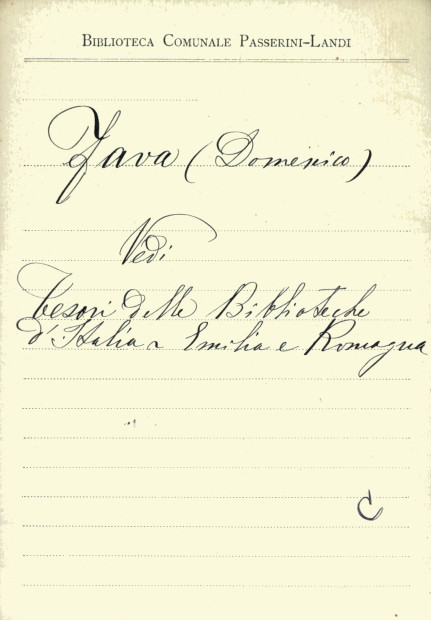 BIBLIOTECA COMUNALE PASSERINI-LANDI
Fava (Domenico)
Vedi
Tesori delle Biblioteche
d'Italia - Emilia e Romagna
C